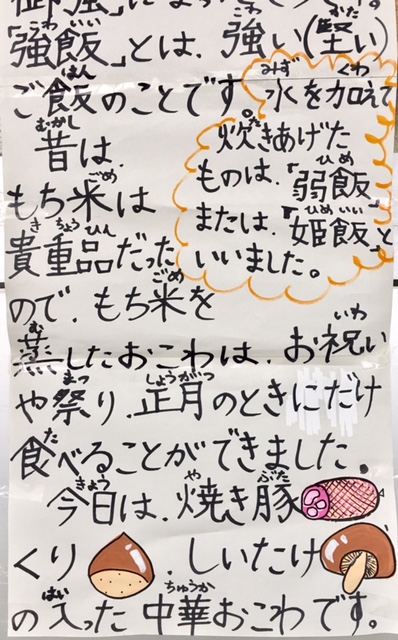 「強飯」とは、強い(堅い)
ご飯のことです。
水を加えて
炊きあげた
ものは、「弱飯」
または、「姫飯」と
いいました。
昔は、
もち米は
貴重品だった
ので、もち米を
蒸したおこわは、お祝い
や祭り、正月のときにだけ
食べることができました。
今日は、焼き豚
くり、しいたけ
の入った中華おこわです。